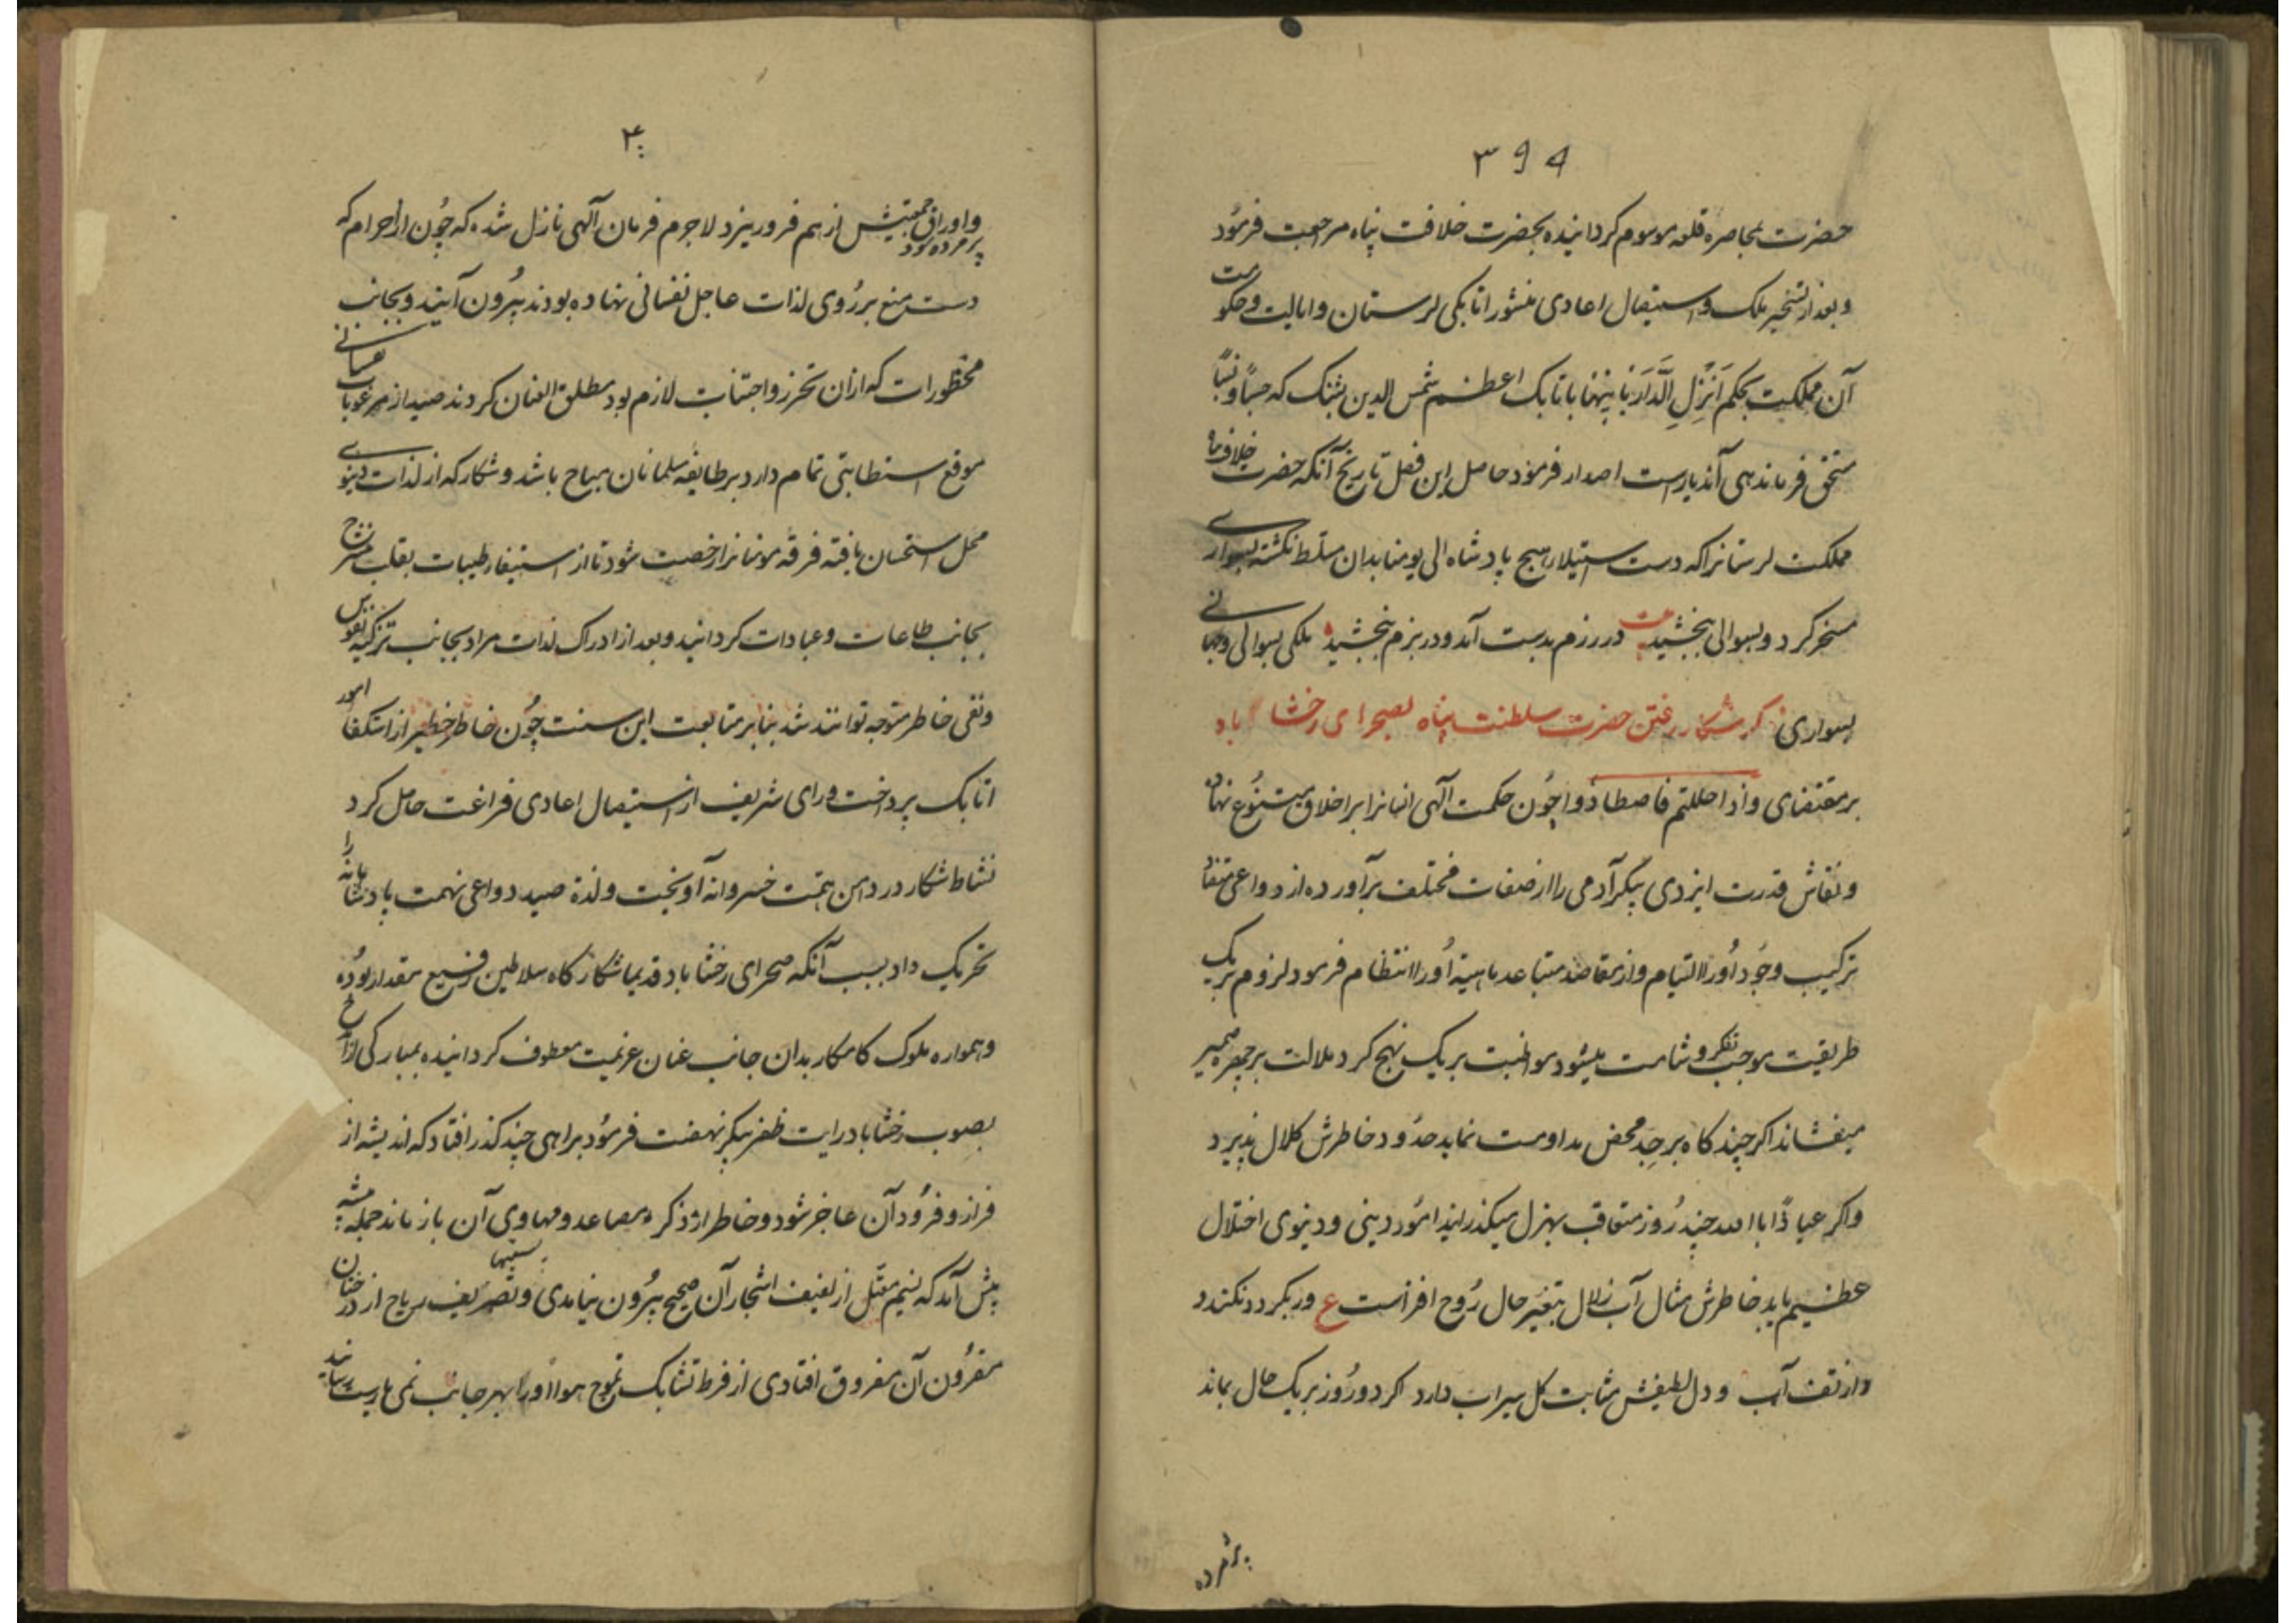 ۳۹۹
حضرت بمحاصره قلعه موسوم کردانیده بحضرت خلافت پناه مراجعت فرمود
و بعد از تسخیر ملک و استیصال اعادی منشور اتابکی لرستان و ایالت و حکومت
آن مملکت بحکم اَنزِلِ الدَّارَ بَانیها باتابک اعظم شمس الدین پشنک که حسباً و نسباً
مستحق فرماندهی آندیارست اصدار فرمود حاصل این فصل تاریخ آنکه حضرت خلافت
مملکت لرستانرا که دست استیلاء هیچ پادشاه الی یومنا بدان مسلط نکشته بسواری
مسخر کرد و بسوالی ببخشید بیت در رزم بدست آمد و در بزم ببخشید ملکی بسوالی و جهانی
بسواری ذکر شکار رفتن حضرت سلطنت پناه بصحرای رخشاباد
بر مقتضای و اذا حللتم فاصطادوا چون حکمت آلهی انسانرا بر اخلاق متنوع نهاده
و نقاش قدرت ایزدی پیکر آدمی را از صفات مختلف برآورده از دواعی
ترکیب وجود اورا التیام و از مقاصد متباعد ماهیة اورا انتظام فرمود لزوم بریک
طریقیت موجب تفکر و شامت میشود مواظبت بر یک نهج کرد ملالت بر چهره ضمیر
میفشاند اکر چند کاه بر جِد محض مداومت نماید حدود خاطرش کلال پذیرد
و اکر عیاذاً بالله چند روز متعاقب بهزل میکذراند امور دینی و دنیوی اختلال
عظیم یابد خاطرش مثال آب زلال بتغیر حال روح افزاست ع ور یکردد نکندد
دارتف آب و دل لطیفش مثابت کل سیراب دارد اکر دو روز بر یک حال بماند
پژمرده
۴۰۰
پژمرده شود و اوراق جمعیتش از هم فرو ریزد لاجرم فرمان آلهی نازل شده که چون از احرام که
دست منع بر روی لذات عاجل نفسانی نهاده بودند بیرون آیند و بجانب
محظورات که ازان تحرز و اجتناب لازم بود مطلق العنان کردند صید از مرغوبات نفسانی
موقع استطابتی تمام دارد بر طایفه مسلمانان مباح باشد و شکار که از لذات دنیوی
محل استحسان یافته فرقه مومنانرا رخصت شود تا از استیفاء طیبات بقلب منشرح
بجانب طاعات و عبادات کردانید و بعد از ادراک لذات مراد بجانب تزکیه نفوس
و نقی خاطر متوجه توانند شد بنابر متابعت این سنت چون خاطر خطیر از استکفاء امور
اتابک پرداخت و رای شریف از استیصال اعادی فراغت حاصل کرد
نشاط شکار در دامن همت خسروانه آویخت و لذة صید دواعی نهمت پادشاهانه را
تحریک داد بسبب آنکه صحرای رخشاباد قدیما شکارکاه سلاطین رفیع مقدار بوده
و همواره ملوک کامکار بدان جانب عنان عزیمت معطوف کردانیده بمبارکی
بصوب رخشاباد رایت ظفر پیکر نهضت فرمود براهی چند کذر افتاد که اندیشه از
فراز و فرود آن عاجز شود و خاطر از ذکر مصاعد و مهاوی آن باز ماند جمله بیشه
پیش آمد که نسیم معتل از لفیف اشجار آن صحیح بیرون نیامدی و نسیمها تصریف ریاح از درختان
مقرون آن مفروق افتادی از فرط تشابک تموج هوا اورا بهر جانب نمی یارست رسانید